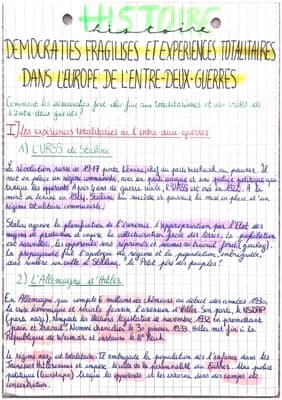 HISTOIRE
histoire
DEMOCRATIES FRAGILISES ET EXPERIENCES TOTALITAIRES
DANS L'EUROPE DE L'ENTRE-DEUX-GUERRES
Comment les démocraties font-elles face aux totalitarismes et aux crises de
l'entre-deux guerres ?
I) Les expériences totalitaires de l'entre-deux-guerres
1) L'URSS de Staline
La révolution russe de 1917 porte Lénine, chef du parti bolchevik, au pouvoir. Il
met en place un régime communiste, avec un parti unique et une police politique qui
traque les opposants. Après 4 ans de guerre civile, l'URSS est née en 1922. A la
mort de Lénine en 1924, Staline lui succède et poursuit la mise en place d'un
régime totalitaire communiste.
Staline agrave la planification de l'économie, l'appropriation par l'Etat des
moyens de production et impose la collectivisation forcée des terres. La population
est surveillée, les opposants sont réprimés et soumis au travail forcé (goulag).
La propagande fait l'apologie du régime et la population, embrigadée,
doit vouer un culte à Staline, le "Petit père des peuples".
2) L'Allemagne d'Hitler
En Allemagne, qui compte 6 millions de chômeurs au début des années 1930,
la crise économique et sociale favorise l'ascension d'Hitler. Son parti, le NSDAP
(parti nazi), remporte les élections législatives de novembre 1932 en promettant
"pain et travail". Nommé chancelier le 30 janvier 1933, Hitler met fin à la
République de Weimar et instaure le IIIe Reich.
Le régime nazi est totalitaire. Il embrigade la population dès l'enfance dans les
Jeunesses Hitlériennes et impose le culte de la personnalité au Führer. Une police
politique (Gestapo) traque les opposants et les interne dans des camps de
concentration.